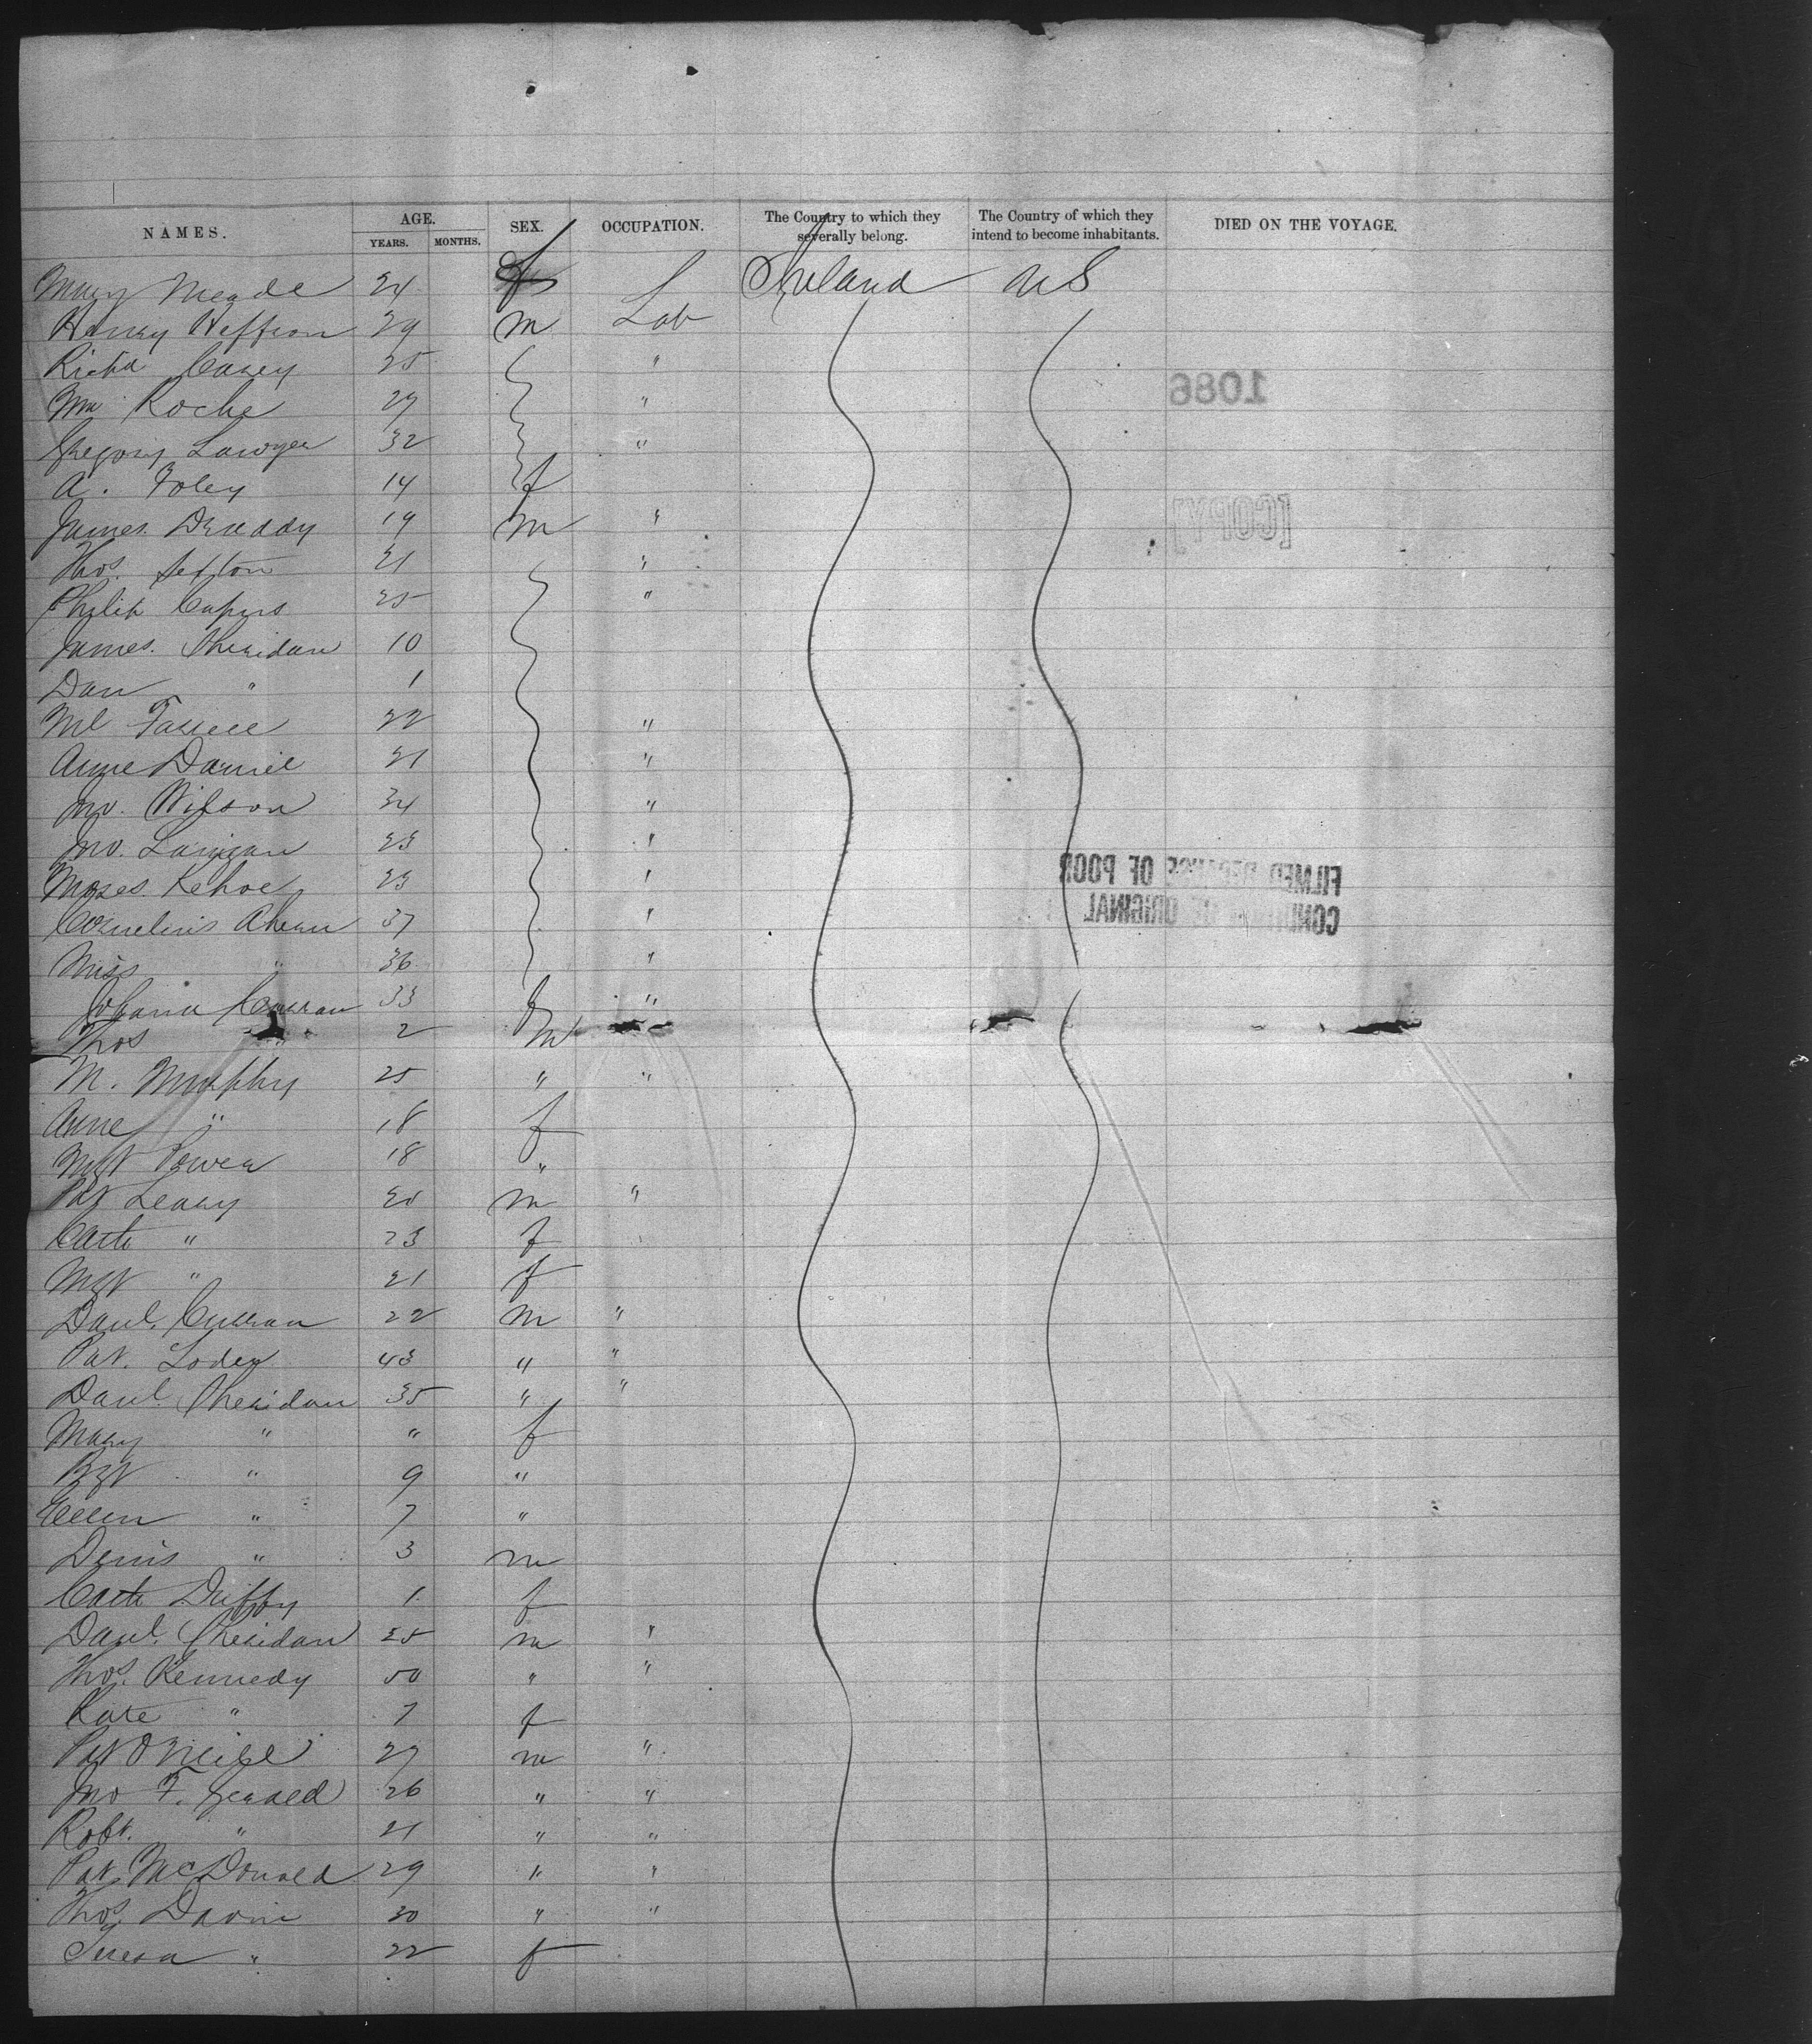 NAMES. AGE. SEX. OCCUPATION. The Country to which they severally belong. The Country of which they intend to become inhabitants. DIED ON THE VOYAGE.
YEARS. MONTHS.
Mary Meade 24 f Ireland U S
Henry Heffron 29 m Lab
Richd Casey 25 "
Wm Roche 27 "
Gregory Lawyer 32 "
A. Foley 14 f
James Druddy 19 m "
Thos. Sexton 21 "
Philip 25 "
James Sheridan 10
Dan " 1
Ml 22 "
Anne Daniel 21 "
Jno. Wilson 34 "
Jno. Lanigan 23 "
Moses Kehoe 23 "
Cornelius Ahearn 37 "
Miss " 36 "
Johana Curran 33 f "
Thos " 2 m
M. Murphy 25 " "
Anne " 18 f
Mgt Power 18 "
Pat Leary 20 m "
Cath " 23 f
Mgt " 21 f
Danl. Curran 22 m "
Pat. Loder 43 " "
Danl. Sheridan 35 " "
Mary " " f
Bgt " 9 "
Ellen " 7 "
Denis " 3 m
Cath Duffy 1 f
Danl. Sheridan 25 m "
Thos. Kennedy 50 " "
Kate " 7 f
Pat O'Neill 27 m "
Jno F. Gerald 26 " "
Robt. " 21 " "
Pat. McDonald 29 " "
Thos. Davin 30 " "
Teresa " 22 f
1086
[COPY]
FILMED BECAUSE OF POOR
CONDITION OF ORIGINAL